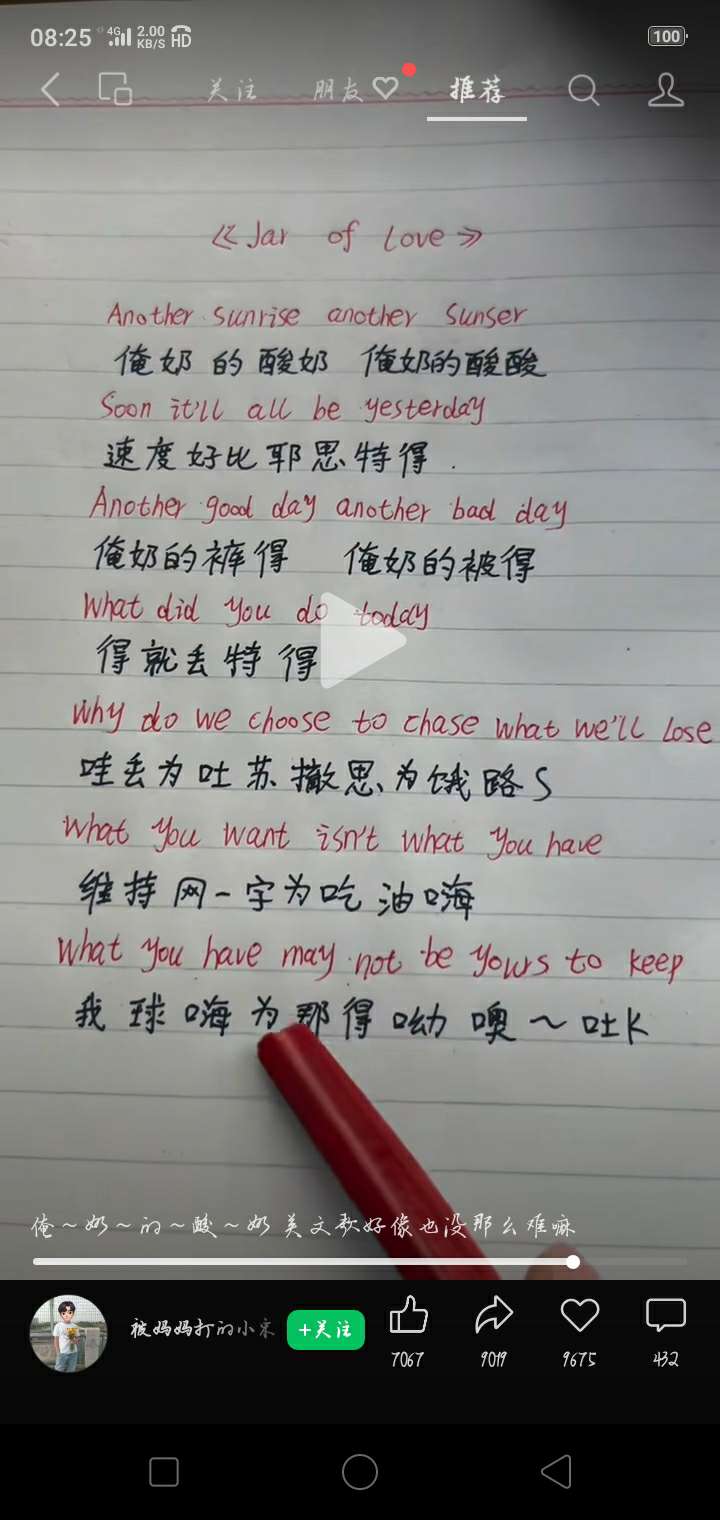 08:25 4G 2.00 KB/S HD 100
关注 朋友 推荐
《Jar of Love》
Another sunrise another sunser
俺奶的酸奶 俺奶的酸酸
Soon it'll all be yesterday
速度好比耶思特得.
Another good day another bad day
俺奶的裤得 俺奶的被得
What did you do today
得就丢特得
Why do we choose to chase what we'll lose
哇丢为吐苏撤思为饿路S
What you want isn't what you have
维持网一字为吃油嗨
What you have may not be yours to keep
我球嗨为那得呦噢~吐K
俺~奶~的~酸~奶英文歌好像也没那么难嘛
被妈妈打的小宋 +关注
7067 9019 9675 432